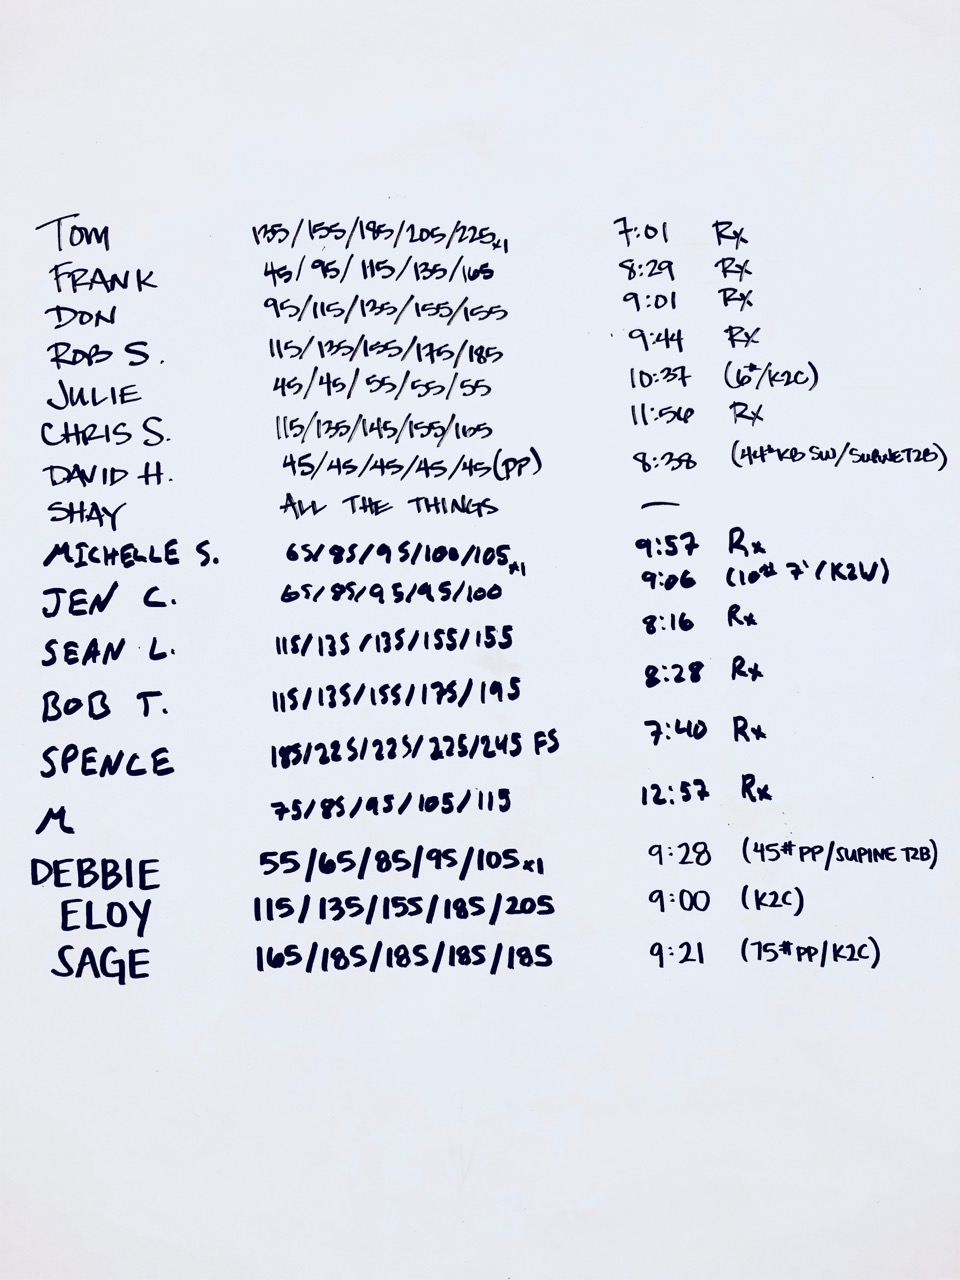 Tom 135/155/185/205/225x1 7:01 Rx
FRANK 45/95/115/135/165 8:29 Rx
DON 95/115/135/155/155 9:01 Rx
ROB S. 115/135/155/175/185 9:44 Rx
JULIE 45/45/55/55/55 10:37 (6#/K2C)
CHRIS S. 115/135/145/155/165 11:56 Rx
DAVID H. 45/45/45/45/45(PP) 8:38 (44# KB SW/SUPINE T2B)
SHAY ALL THE THINGS —
MICHELLE S. 65/85/95/100/105x1 9:57 Rx
JEN C. 65/85/95/95/100 9:06 (10# 7'/K2W)
SEAN L. 115/135/135/155/155 8:16 Rx
BOB T. 115/135/155/175/195 8:28 Rx
SPENCE 185/225/225/225/245 FS 7:40 Rx
M 75/85/95/105/115 12:57 Rx
DEBBIE 55/65/85/95/105x1 9:28 (45# PP/SUPINE T2B)
ELOY 115/135/155/185/205 9:00 (K2C)
SAGE 165/185/185/185/185 9:21 (75# PP/K2C)